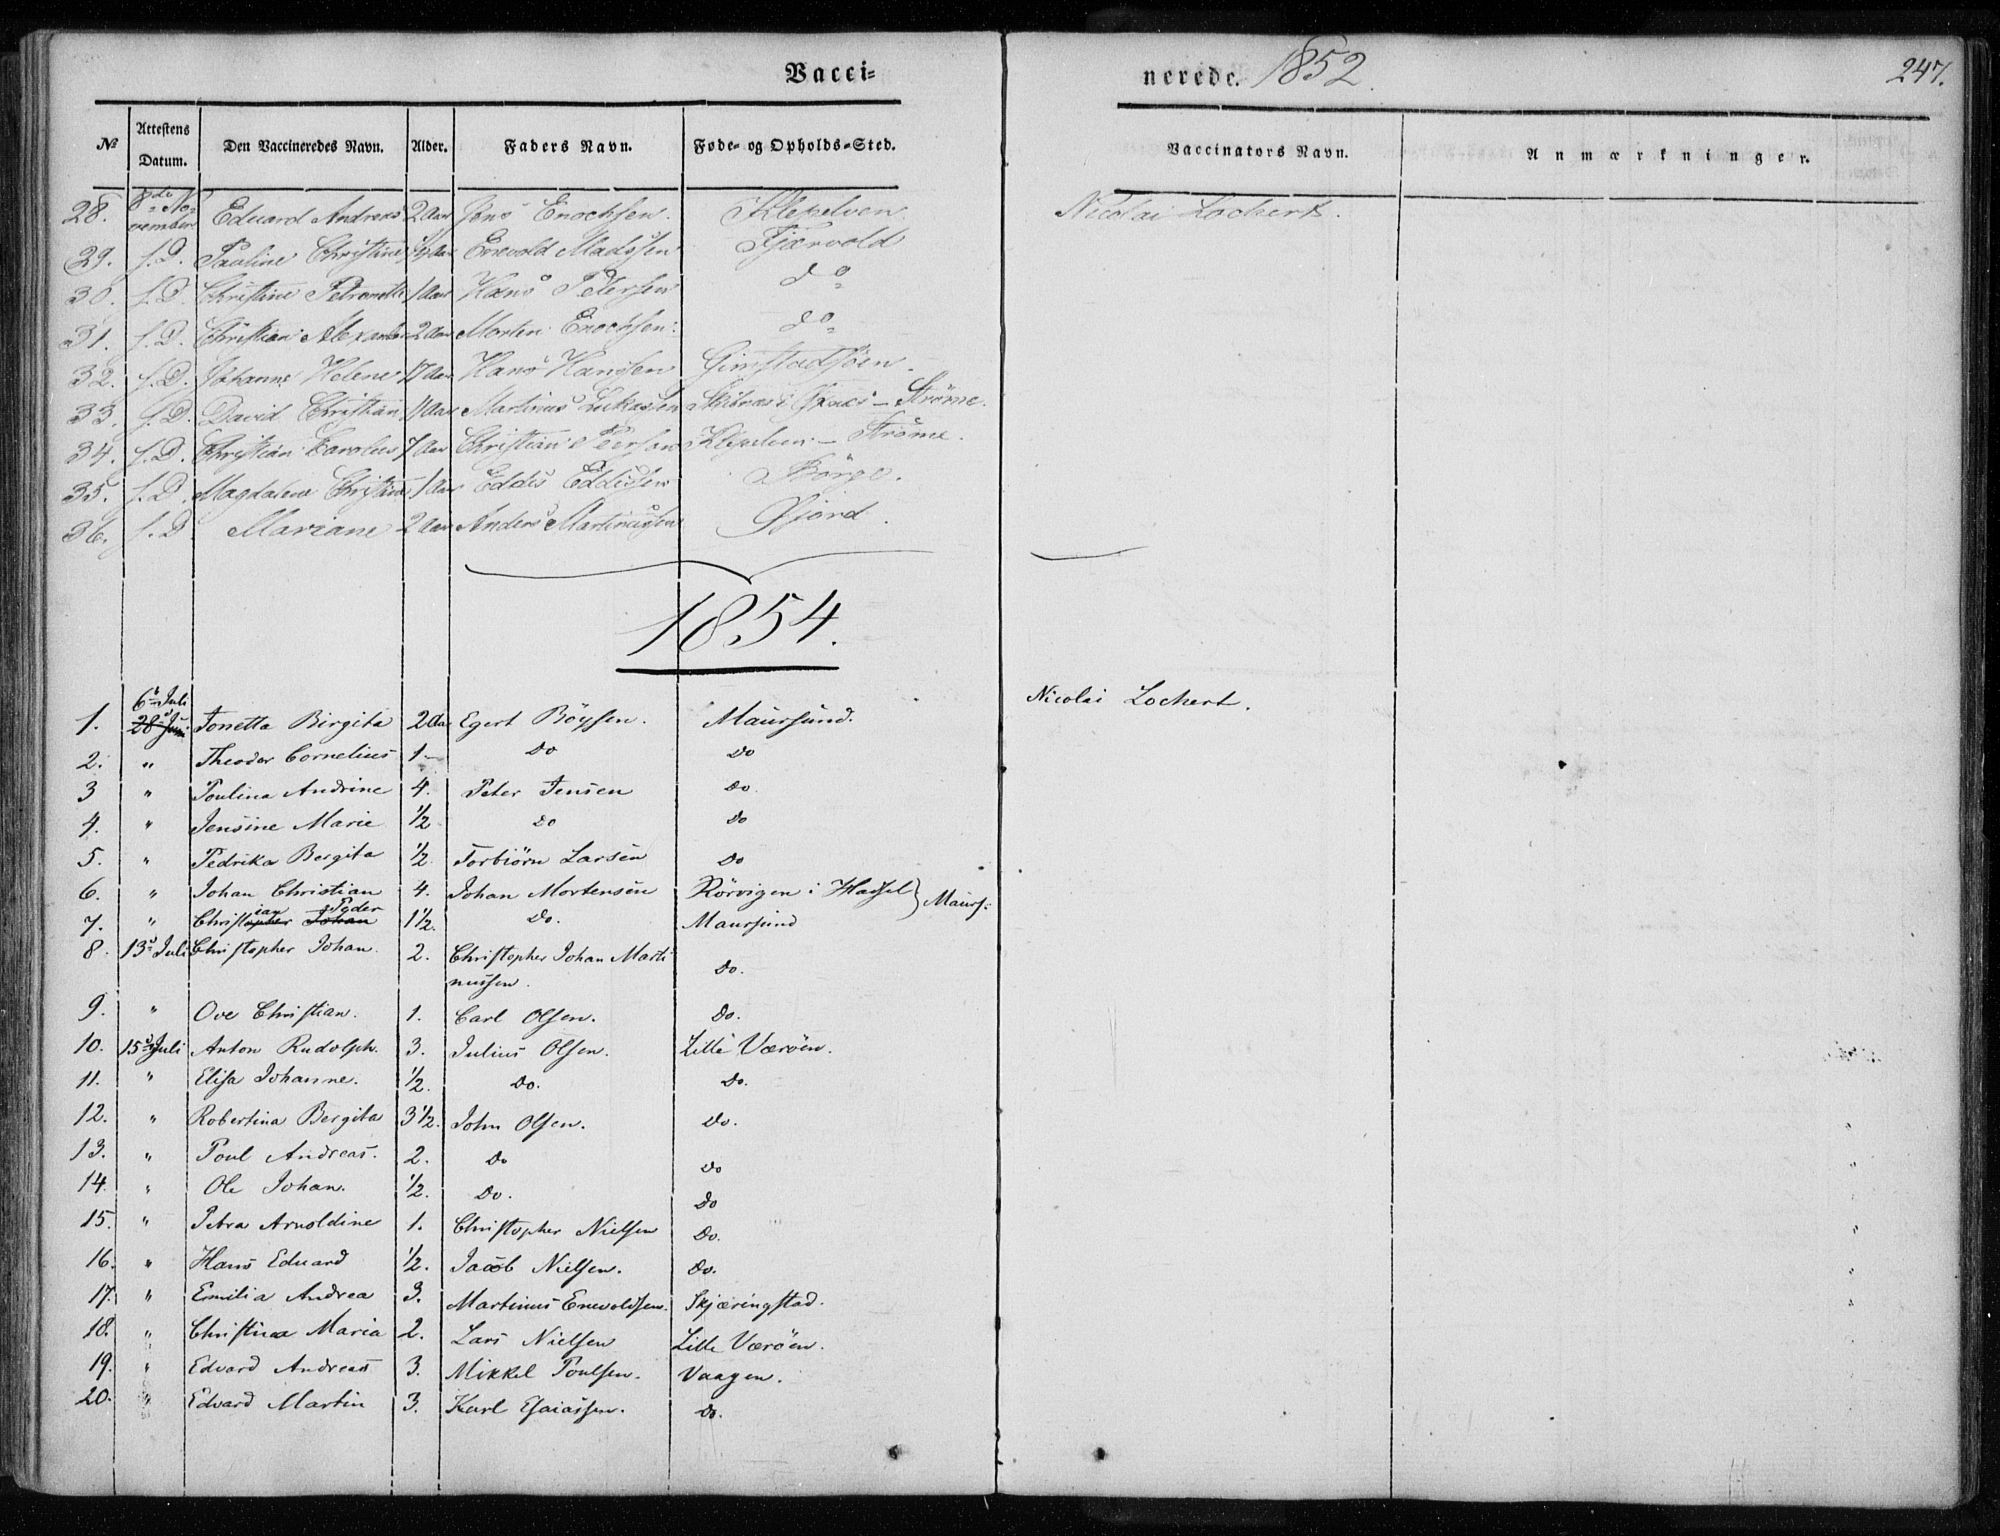 Vacci=
nerede. 1852. 247.
No Attestens Datum. Den Vaccineredes Navn. Alder. Faders Navn. Føde= og Opholds=Sted. Vaccinators Navn. Anmærkninger.
28. 8de November Eduard Andreas 2 Aar Jens Enochsen. Klepelven. Nicolai Lochert.
29. s.D. Pauline Christine 1/2 Aar Enevold Madssen Kjærvold
30. s.D. Christine Petronelle 1 Aar Hans Petersen do
31. s.D. Christian Alexander 2 Aar Morten Enochsen do
32. s.D. Johanne Helene Aar Hans Hanssen Gimstadsøen.
33. s.D. David Christian Aar Martinus Lukassen i Øxnes – Strøme.
34. s.D. Christian Carolus 7 Aar Christian Peersen Klepelven – Strøme.
35. s.D. Magdalene Christine 1 Aar Eddis Eddissen Børge.
36. s.D. Mariane 2 Aar Anders Martinussen Øfjord.
1854.
6te Juli
1. 28 Juni Tonetta Birgita 2 Aar Egert Böysen. Maursund. Nicolai Lochert.
2. " Theodor Cornelius 1– Do Do
3 " Poulina Andrine 4. Peter Jensen Do.
4. " Jensine Marie 1/2 Do Do
5. " Pedrika Bergita 1/2. Torbiörn Larsen Do
6. " Johan Christian 4. Johan Mortensen Rörvigen i Hassel } Maurs:
7. " Christopher ian Johan Peder 1 1/2. Do. Maursund
8. 13de Juli Christopher Johan. 2. Christopher Johan Marti
nussen. Do.
9. " Ove Christian. 1. Carl Olsen. Do.
10. 15de Juli Anton Rudolph. 3. Julius Olsen. Lille Værøen.
11. " Elisa Johanne. 1/2. Do. Do.
12. " Robertina Bergita 3 1/2. John Olsen. Do.
13. " Poul Andreas. 2. Do Do
14. " Ole Johan. 1/2. Do. Do
15. " Petra Arnoldine 1. Christopher Nielsen Do.
16. " Hans Eduard 1/2. Jacob Nielsen. Do.
17. " Emilia Andrea 3. Martinus Enevoldsen. Skjæringstad.
18. " Christina Maria 2. Lars Nielsen Lille Værøen.
19. " Edvard Andreas 3. Mikkel Poulsen. Vaagen.
20. " Edvard Martin 3. Karl Esaiassen. Do.